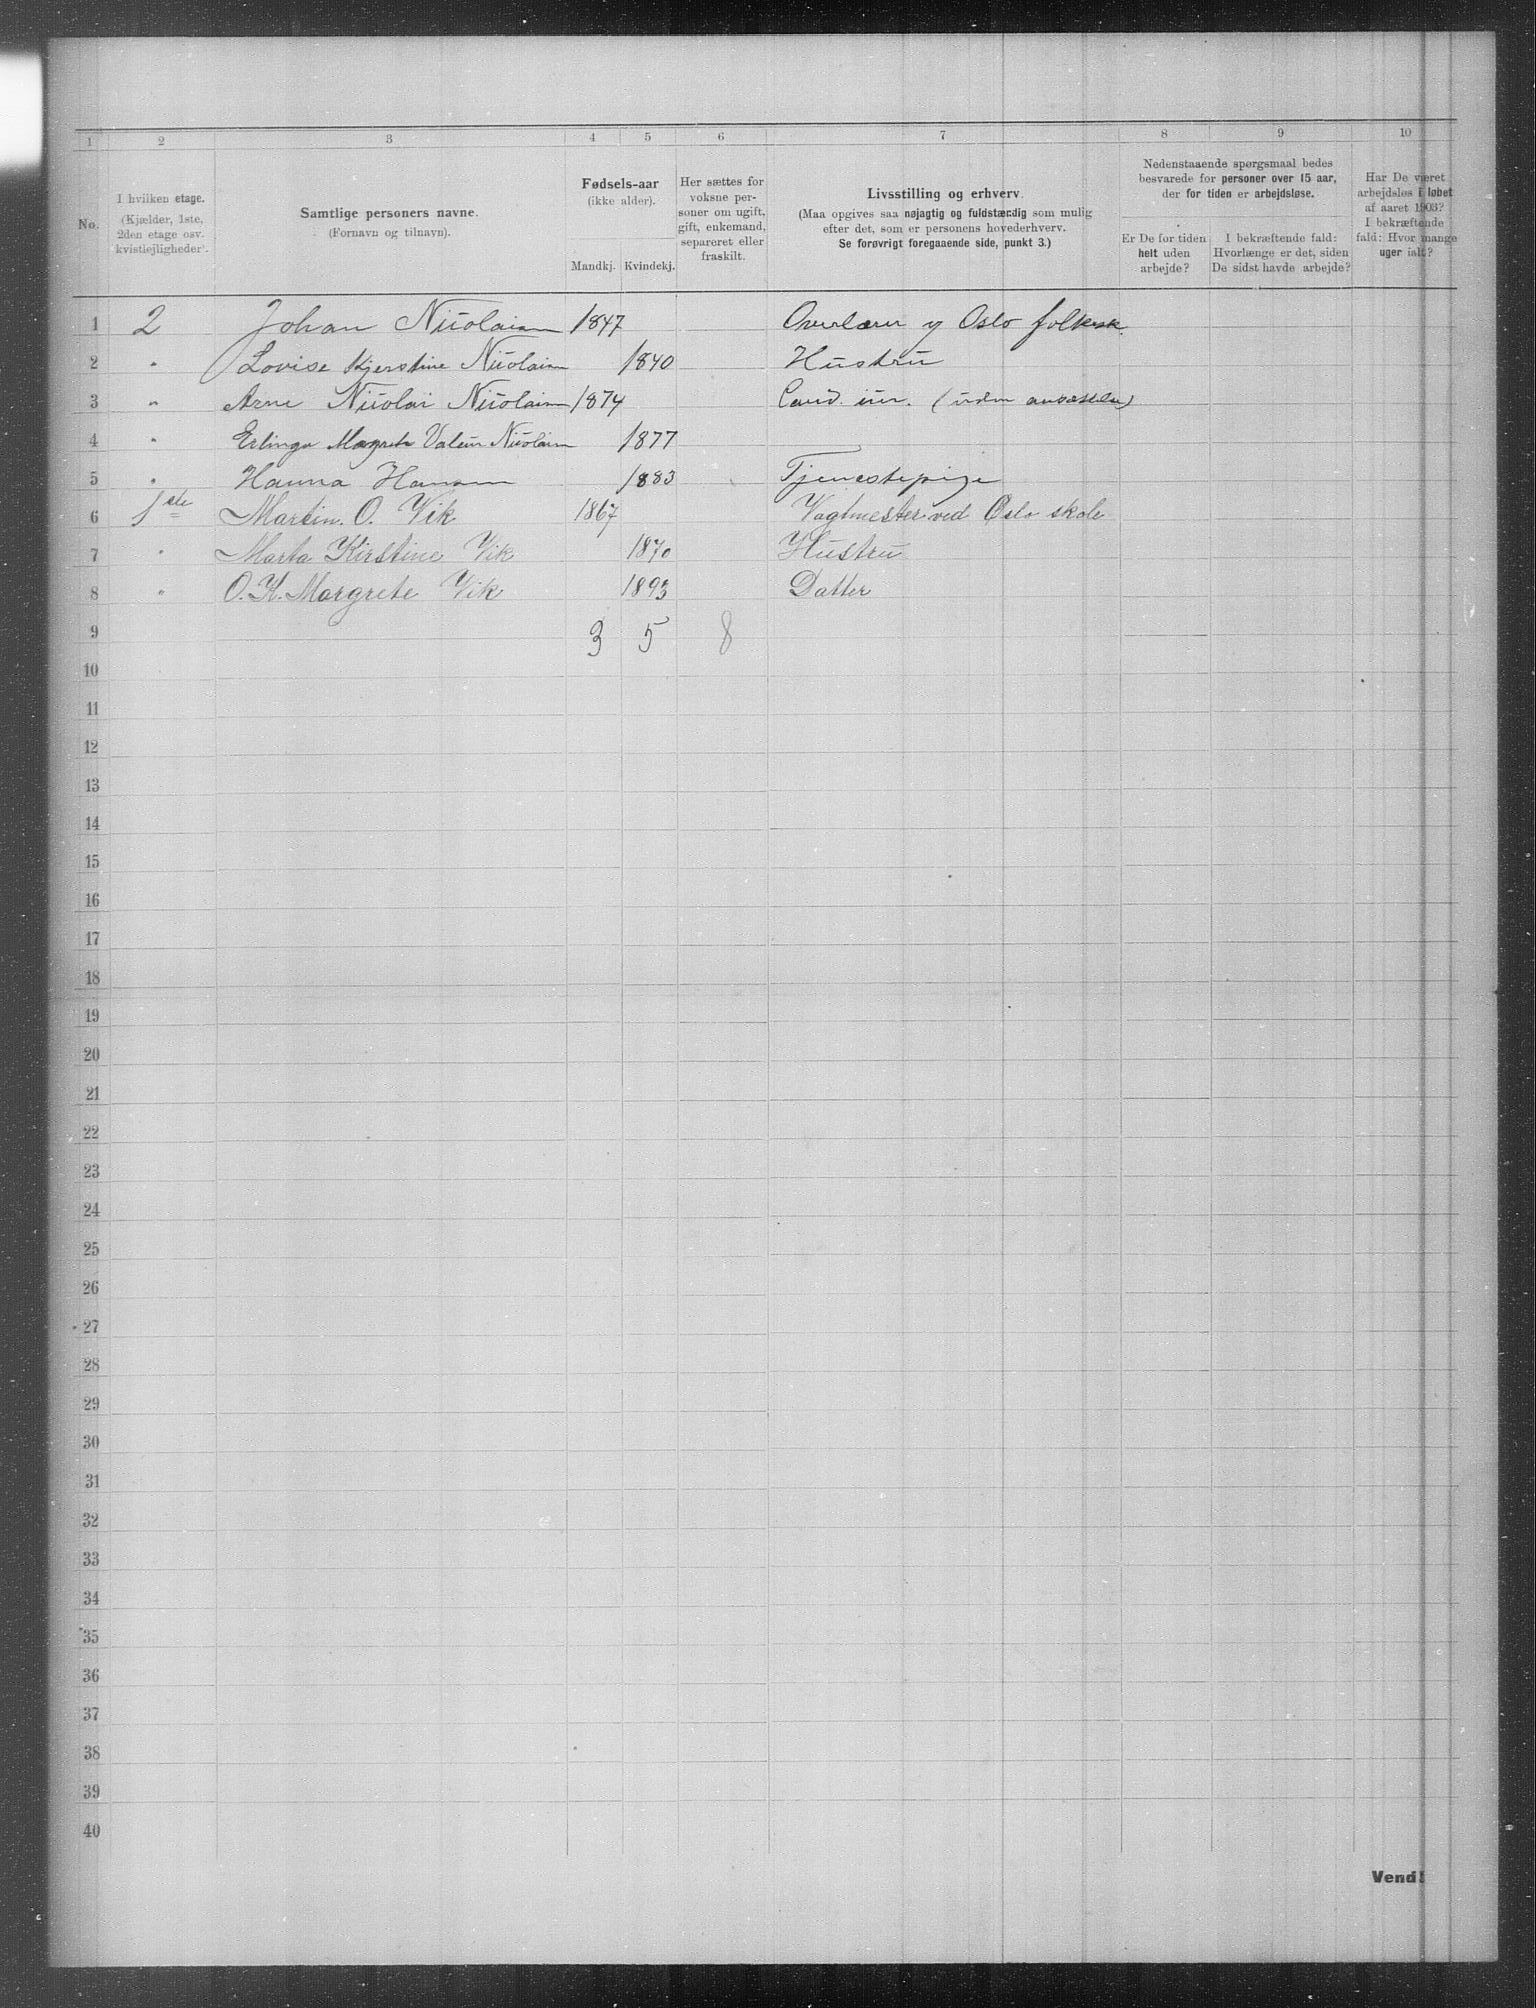 1 2 3 4 5 6 7 8 9 10
No.
I hvilken etage.
(Kjælder, 1ste,
2den etage osv.
kvistlejligheder).
Samtlige personers navne.
(Fornavn og tilnavn).
Fødsels-aar
(ikke alder).
Mandkj. Kvindekj.
Her sættes for
voksne per-
soner om ugift,
gift, enkemand,
separeret eller
fraskilt.
Livsstilling og erhverv.
(Maa opgives saa nøjagtig og fuldstændig som mulig
efter det, som er personens hovederhverv.
Se forøvrigt foregaaende side, punkt 3.)
Nedenstaaende spørgsmaal bedes
besvarede for personer over 15 aar,
der for tiden er arbejdsløse.
Er De for tiden
helt uden
arbejde?
I bekræftende fald:
Hvorlænge er det, siden
De sidst havde arbejde?
Har De været
arbejdsløs i løbet
af aaret 1903?
I bekræftende
fald: Hvor mange
uger ialt?
1 2 Johan Nicolaisen 1847 Overlærer v Oslo folkesk.
2 " Lovise Kjerstine Nicolaisen 1840 Hustru
3 " Arne Nicolai Nicolaisen 1874 Cand. jur. (uden ansættelse)
4 " Erlinga Magrete Nicolaisen 1877
5 " Hanna Hansen 1883 Tjenestepige
6 1ste Martin. O. Vik 1867 Vagtmester ved Oslo skole
7 " Marta Kirstine Vik 1870 Hustru
8 " O. K. Margrete Vik 1893 Datter
9 3 5 8
10
11
12
13
14
15
16
17
18
19
20
21
22
23
24
25
26
27
28
29
30
31
32
33
34
35
36
37
38
39
40
Vend!